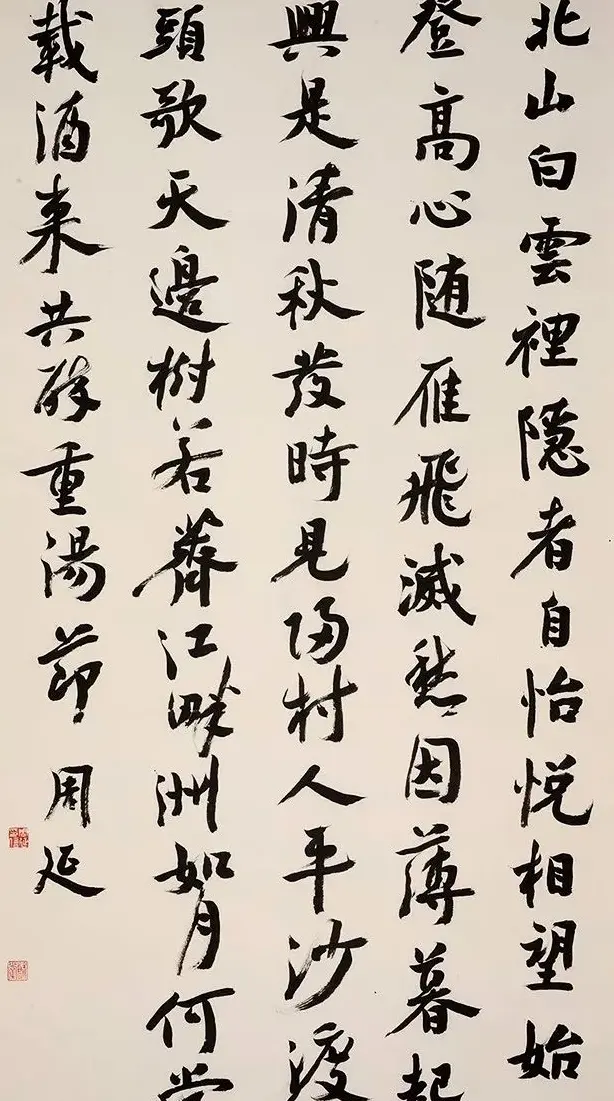 北山白雲裡隱者自怡悅相望始
登高心随雁飛滅愁因薄暮起
興是清秋發時見歸村人平沙渡
頭歌天邊樹若薺江畔洲如月何當
載酒来共醉重湯節 周延